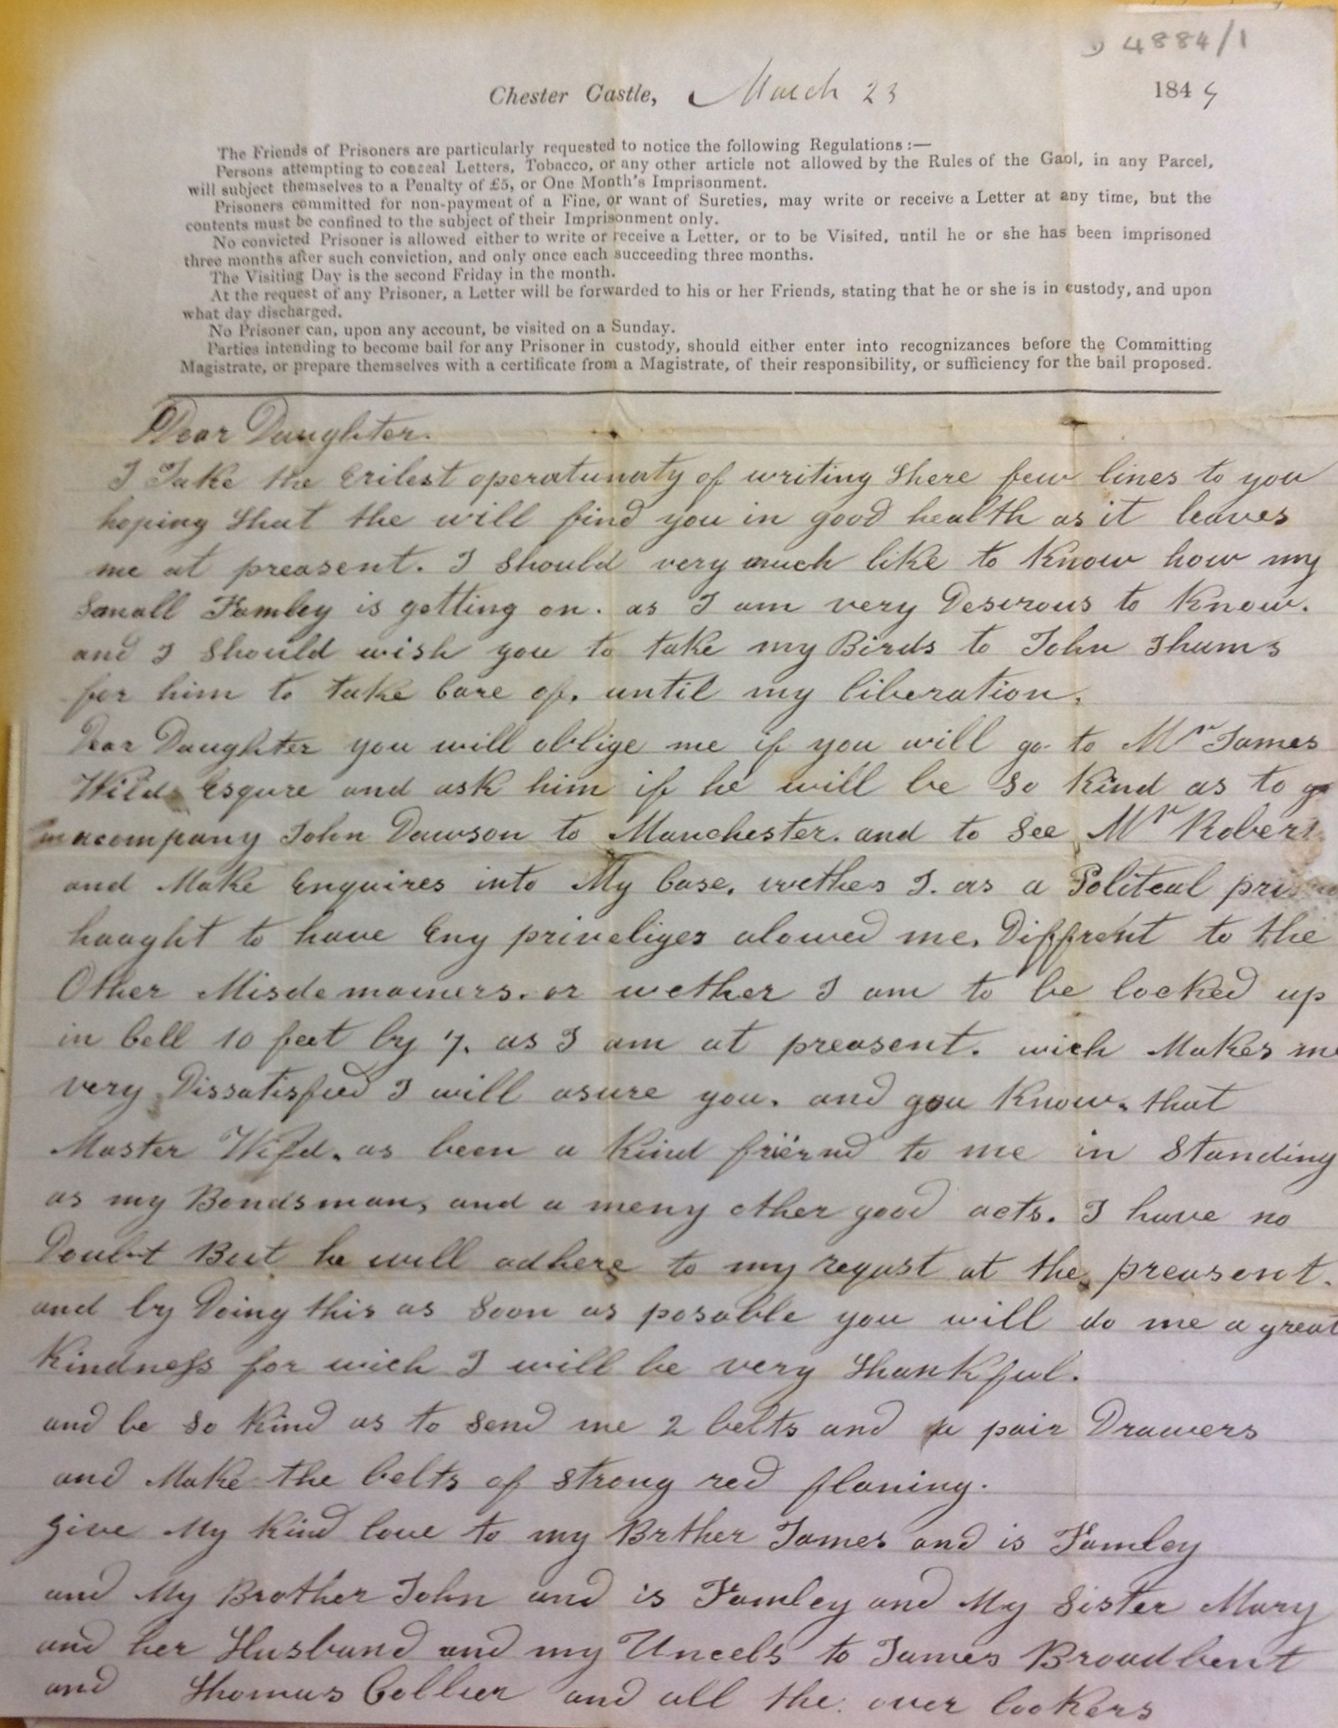 D 4884/1
Chester Castle, March 23 184
The Friends of Prisoners are particularly requested to notice the following Regulations :—
Persons attempting to conceal Letters, Tobacco, or any other article not allowed by the Rules of the Gaol, in any Parcel,
will subject themselves to a Penalty of £5, or One Month's Imprisonment.
Prisoners committed for non-payment of a Fine, or want of Sureties, may write or receive a Letter at any time, but the
contents must be confined to the subject of their Imprisonment only.
No convicted Prisoner is allowed either to write or receive a Letter, or to be Visited, until he or she has been imprisoned
three months after such conviction, and only once each succeeding three months.
The Visiting Day is the second Friday in the month.
At the request of any Prisoner, a Letter will be forwarded to his or her Friends, stating that he or she is in custody, and upon
what day discharged.
No Prisoner can, upon any account, be visited on a Sunday.
Parties intending to become bail for any Prisoner in custody, should either enter into recognizances before the Committing
Magistrate, or prepare themselves with a certificate from a Magistrate, of their responsibility, or sufficiency for the bail proposed.
Dear Daughter.
I Take the Erilest operatunaty of writing there few lines to you
hoping that the will find you in good health as it leaves
me at preasent. I should very much like to know how my
Small Famley is getting on. as I am very Desirous to Know.
and I should wish you to take my Birds to John Thums
for him to take Care of. until my liberation.
Dear Daughter you will oblige me if you will go to Mr James
Wild Esqure and ask him if he will be so kind as to go
acompany John Dawson to Manchester. and to see Mr Robert
and Make Enquires into My Case. wether I. as a Politcal
haught to have Eny priveliges alowed me. Diffrent to the
Other Misdemainers. or wether I am to be locked up
in Cell 10 feet by 7. as I am at preasent. wich Makes me
very Dissatisfied I will asure you. and you Know. that
Master Wild. as been a kind friend to me in standing
as my Bondsman, and a meny other good acts. I have no
Doubt But he will adhere to my requst at the preasent.
and by Doing this as soon as posable you will do me a great
Kindness for wich I will be very thankful.
and be so kind as to send me 2 belts and a pair Drawers
and Make the belts of strong red flaning.
give My Kind love to my Brther James and is Famley
and My Brother John and is Famley and My Sister Mary
and her Husband and my Uncels to James Broadbent
and Thomas Collier and all the over lookers